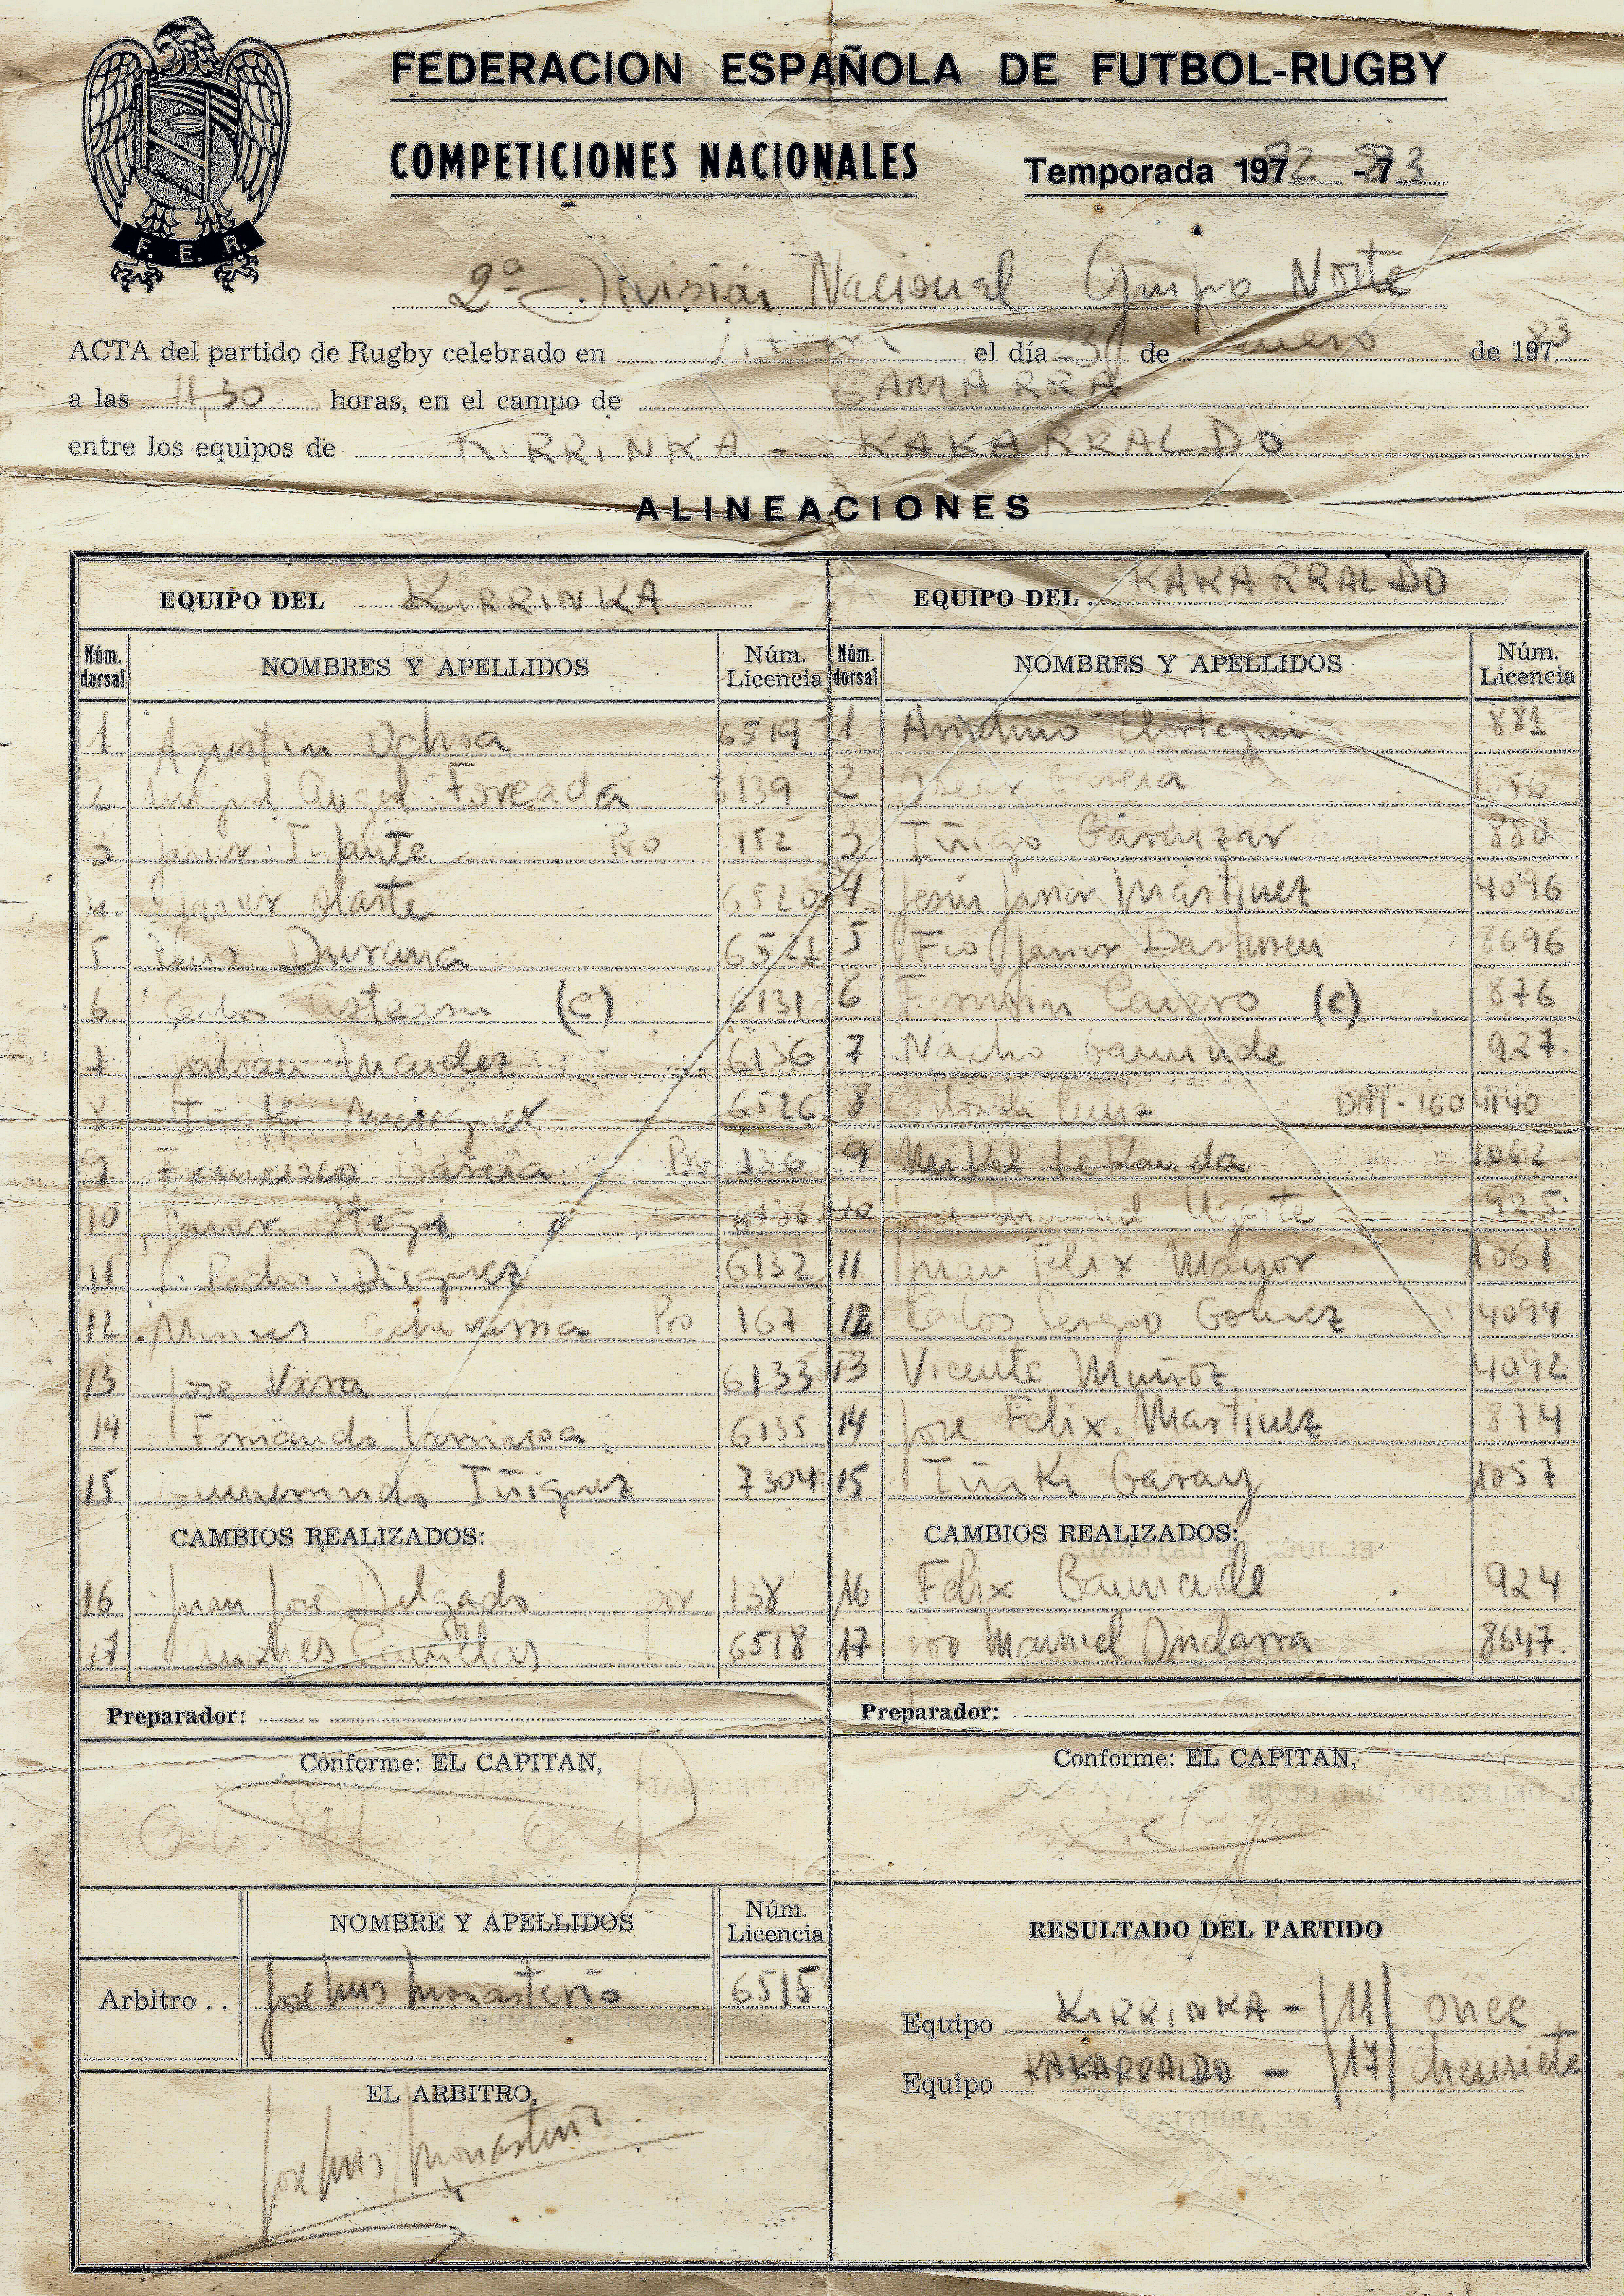 FEDERACION ESPAÑOLA DE FUTBOL-RUGBY
COMPETICIONES NACIONALES
Temporada 1982 - 83
F. E. R.
2ª División Nacional Grupo Norte
ACTA del partido de Rugby celebrado en el día 23 de Enero de 1983
a las 11,30 horas, en el campo de GAMARRA
entre los equipos de KIRRINKA - KAKARRALDO
ALINEACIONES
EQUIPO DEL KIRRINKA
Núm. dorsal NOMBRES Y APELLIDOS Núm. Licencia
1 Agustin Ochoa 6519
2 Miguel Angel Forcada 6139
3 Javier Infante Pro 152
4 Javier Olarte 6520
5 Luis Durana 6521
6 Carlos (C) 6131
7 Mendez 6136
8 6526
9 Francisco Garcia Pro 136
10 Javier
11 Pedro Dieguez 6132
12 Moises Echevarria Pro 167
13 Jose Vara 6133
14 Fernando Larrinoa 6135
15 Gumersindo Iñiguez 7304
CAMBIOS REALIZADOS:
16 Juan Jose Delgado por 138
17 Andres 6518
Preparador:
Conforme: EL CAPITAN,
EQUIPO DEL KAKARRALDO
Núm. dorsal NOMBRES Y APELLIDOS Núm. Licencia
1 Anselmo Elortegui 881
2 Oscar Garcia
3 Iñigo Garaizar 880
4 Jesus Javier Martinez 4096
5 Fco Javier Basterreu 8696
6 Fermin Cavero (C) 876
7 Nacho Gaminde 927
8 DNI - 1604140
9 Mikel Lekanda 1062
10 Jose Manuel Ugarte 925
11 Juan Felix Mayor 1061
12 Carlos Sergio Gomez 4094
13 Vicente Muñoz 4092
14 Jose Felix Martinez 874
15 Iñaki Garay 1057
CAMBIOS REALIZADOS:
16 Felix Gaminde 924
17 por Manuel Ondarra 8647
Preparador:
Conforme: EL CAPITAN,
NOMBRE Y APELLIDOS Núm. Licencia
Arbitro . . Jose Luis Monasterio 6515
EL ARBITRO,
Jose Luis Monasterio
RESULTADO DEL PARTIDO
Equipo KIRRINKA - |11| once
Equipo KAKARRALDO - |17| diecisiete